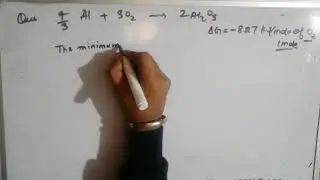 Ques 4/3 Al + 3O2 → 2Al2O3
ΔG = -827 KJ/mole of O2
1 mole
The minimum